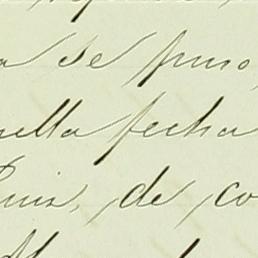 a se puso,
uella fecha
Ruis, de co